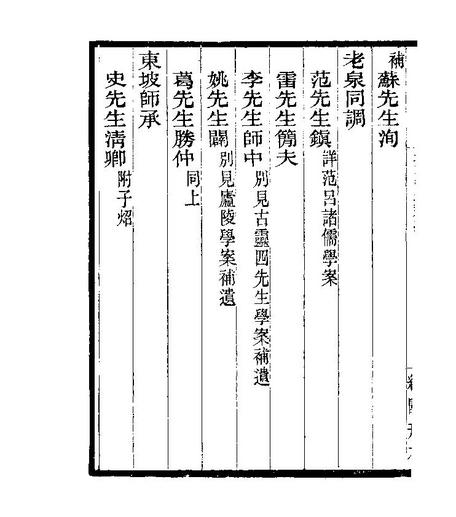 補蘇先生洵
老泉同調
范先生鎮詳范呂諸儒學案
雷先生簡夫
李先生師中別見古靈四先生學案補遺
姚先生闢別見廬陵學案補遺
葛先生勝仲同上
東坡師承
史先生清卿附子炤